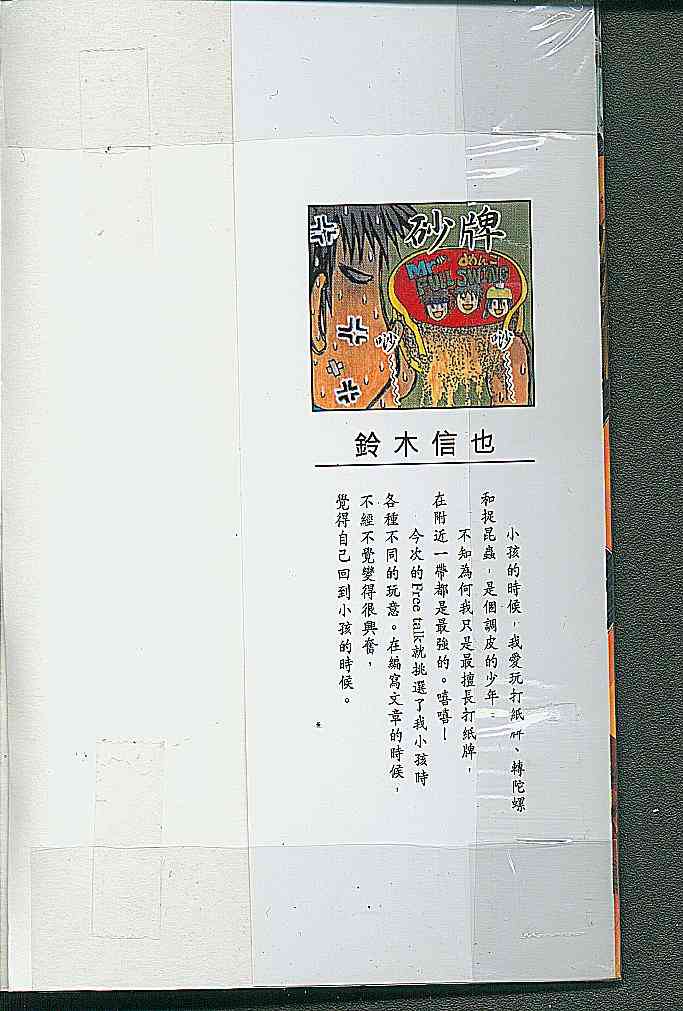 砂牌
Mr.
めんこ
FULL SWING
唦
唦
鈴木信也
小孩的時候，我愛玩打紙牌、轉陀螺
和捉昆蟲，是個調皮的少年。
不知為何我只是最擅長打紙牌，
在附近一帶都是最強的。嘻嘻～
今次的Free talk就挑選了我小孩時
各種不同的玩意。在編寫文章的時候，
不經不覺變得很興奮，
覺得自己回到小孩的時候。